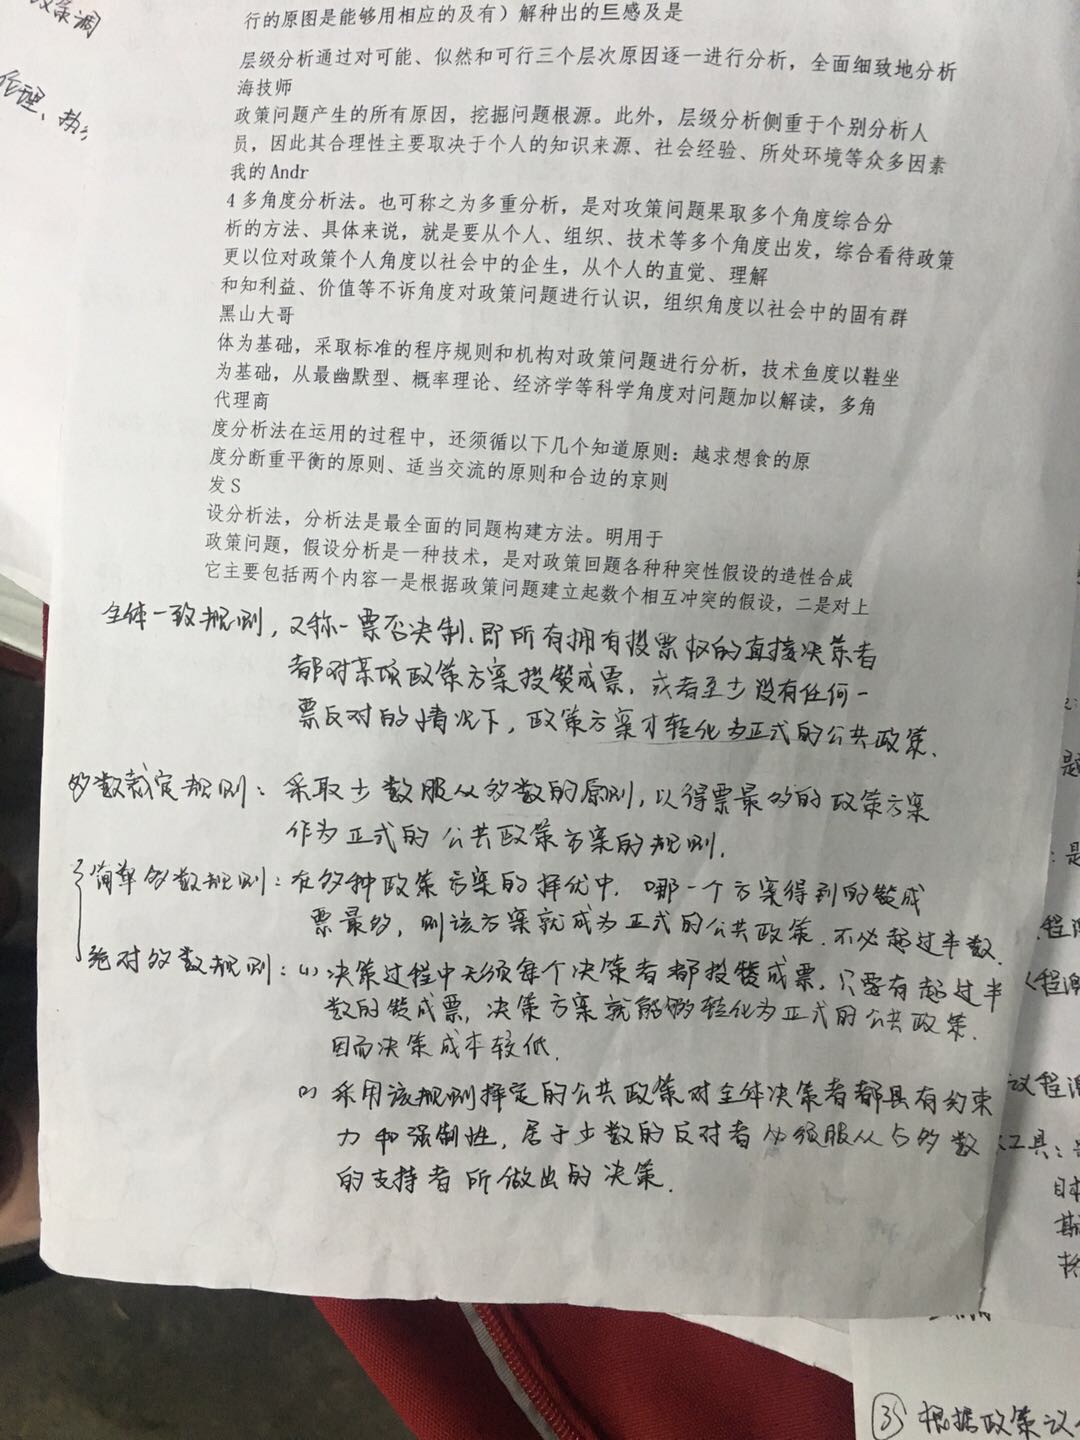 政策调
伦理、
行的原图是能够用相应的及有）解种出的巨感及是
层级分析通过对可能、似然和可行三个层次原因逐一进行分析，全面细致地分析
海技师
政策问题产生的所有原因，挖掘问题根源。此外，层级分析侧重于个别分析人
员，因此其合理性主要取决于个人的知识来源、社会经验、所处环境等众多因素
我的Andr
4多角度分析法。也可称之为多重分析，是对攻策间题果取多个角度综合分
析的方法、具体来说，就是要从个人、组织、技术等多个角度出发，综合看待政策
更以位对政策个人角度以社会中的企生，从个人的直觉、理解
和知利益、价值等不诉角度对政策问题进行认识，组织角度以社会中的固有群
黑山大哥
体为基础，采取标准的程序规则和机构对政策问题进行分析，技术鱼度以鞋坐
为基础，从最幽默型、概率理论、经济学等科学角度对问题加以解读，多角
代理商
度分析法在运用的过程中，还须循以下几个知道原则：越求想食的原
度分断重平衡的原则、适当交流的原则和合边的京则
发S
设分析法，分析法是最全面的同题构建方法。明用于
政策问题，假设分析是一种技术，是对政策回题各种种突性假设的造性合成
它主要包括两个内容一是根据政策问题建立起数个相互冲突的假设，二是对上
全体一致规则，又称一票否决制、即所有拥有投票权的直接决策者
都对某项政策方案投赞成票，或者至少没有任何一
票反对的情况下，政策方案才转化为正式的公共政策.
多数裁定规则：采取少数服从多数的原则，以得票最多的政策方案
作为正式的公共政策方案的规则.
简单多数规则：在多种政策方案的择优中，哪一个方案得到的赞成
票最多，则该方案就成为正式的公共政策.不必超过半数.
绝对多数规则：(1)决策过程中无须每个决策者都投赞成票，只要有超过半
数的赞成票，决策方案就能够转化为正式的公共政策.
因而决策成本较低.
(2)采用该规则择定的公共政策对全体决策者都具有约束
力和强制性，居于少数的反对者必须服从占多数
的支持者所做出的决策.
题
：是
议程
工具：
③根据政策议